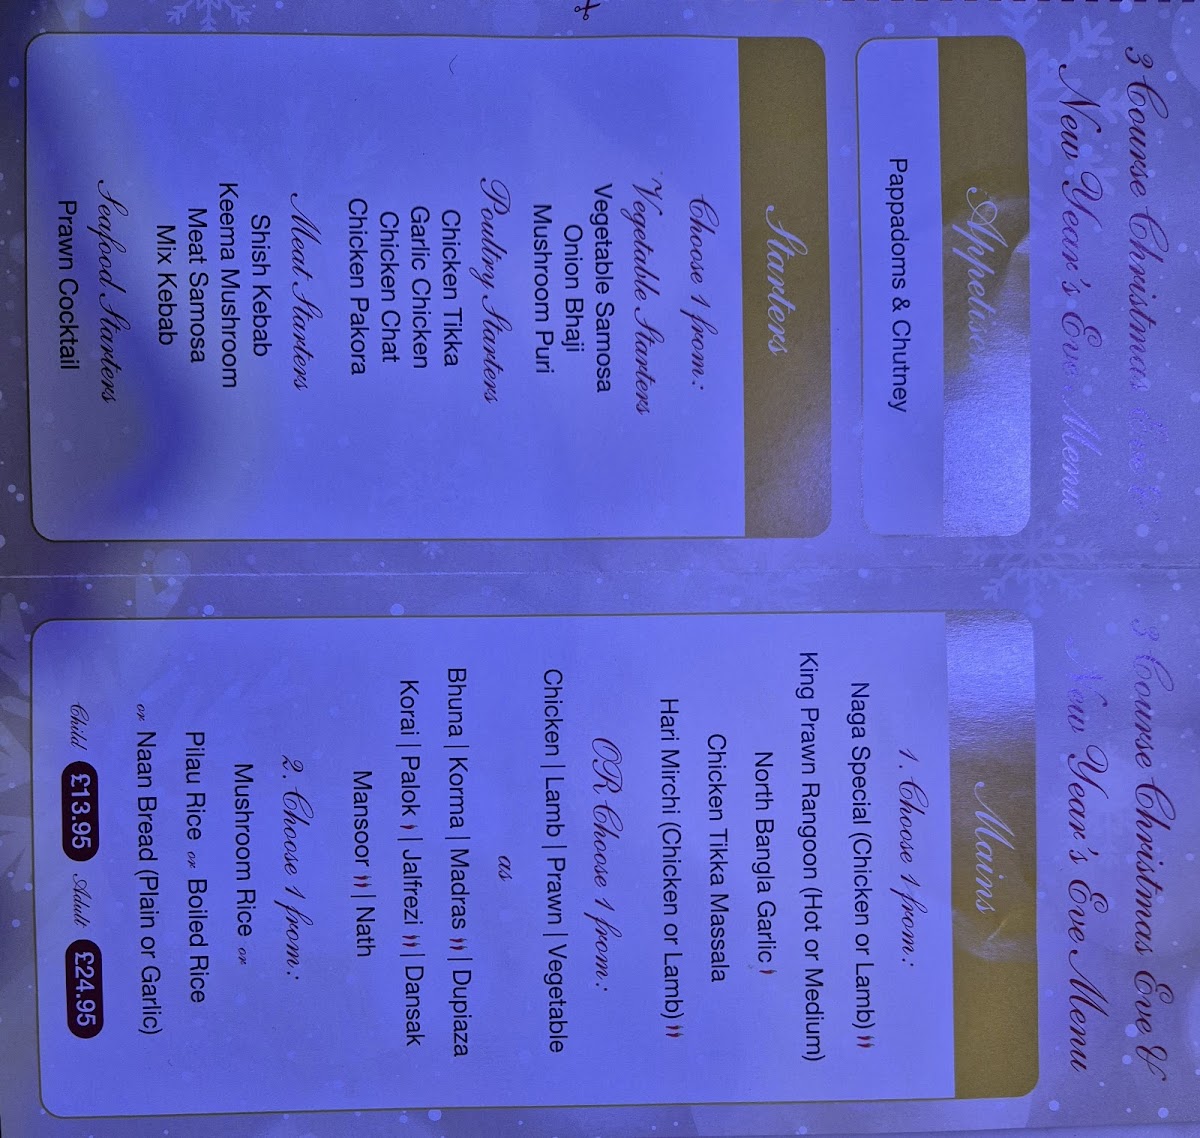 3 Course Christmas Eve &
New Year's Eve Menu
Appetiser
Pappadoms & Chutney
Starters
Choose 1 from:
Vegetable Starters
Vegetable Samosa
Onion Bhaji
Mushroom Puri
Poultry Starters
Chicken Tikka
Garlic Chicken
Chicken Chat
Chicken Pakora
Meat Starters
Shish Kebab
Keema Mushroom
Meat Samosa
Mix Kebab
Seafood Starters
Prawn Cocktail
3 Course Christmas Eve &
New Year's Eve Menu
Mains
1. Choose 1 from:
Naga Special (Chicken or Lamb)
King Prawn Rangoon (Hot or Medium)
North Bangla Garlic
Chicken Tikka Massala
Hari Mirchi (Chicken or Lamb)
OR Choose 1 from:
Chicken | Lamb | Prawn | Vegetable
as
Bhuna | Korma | Madras | Dupiaza
Korai | Palok | Jalfrezi | Dansak
Mansoor | Nath
2. Choose 1 from:
Mushroom Rice or
Pilau Rice or Boiled Rice
or Naan Bread (Plain or Garlic)
Child £13.95 Adult £24.95